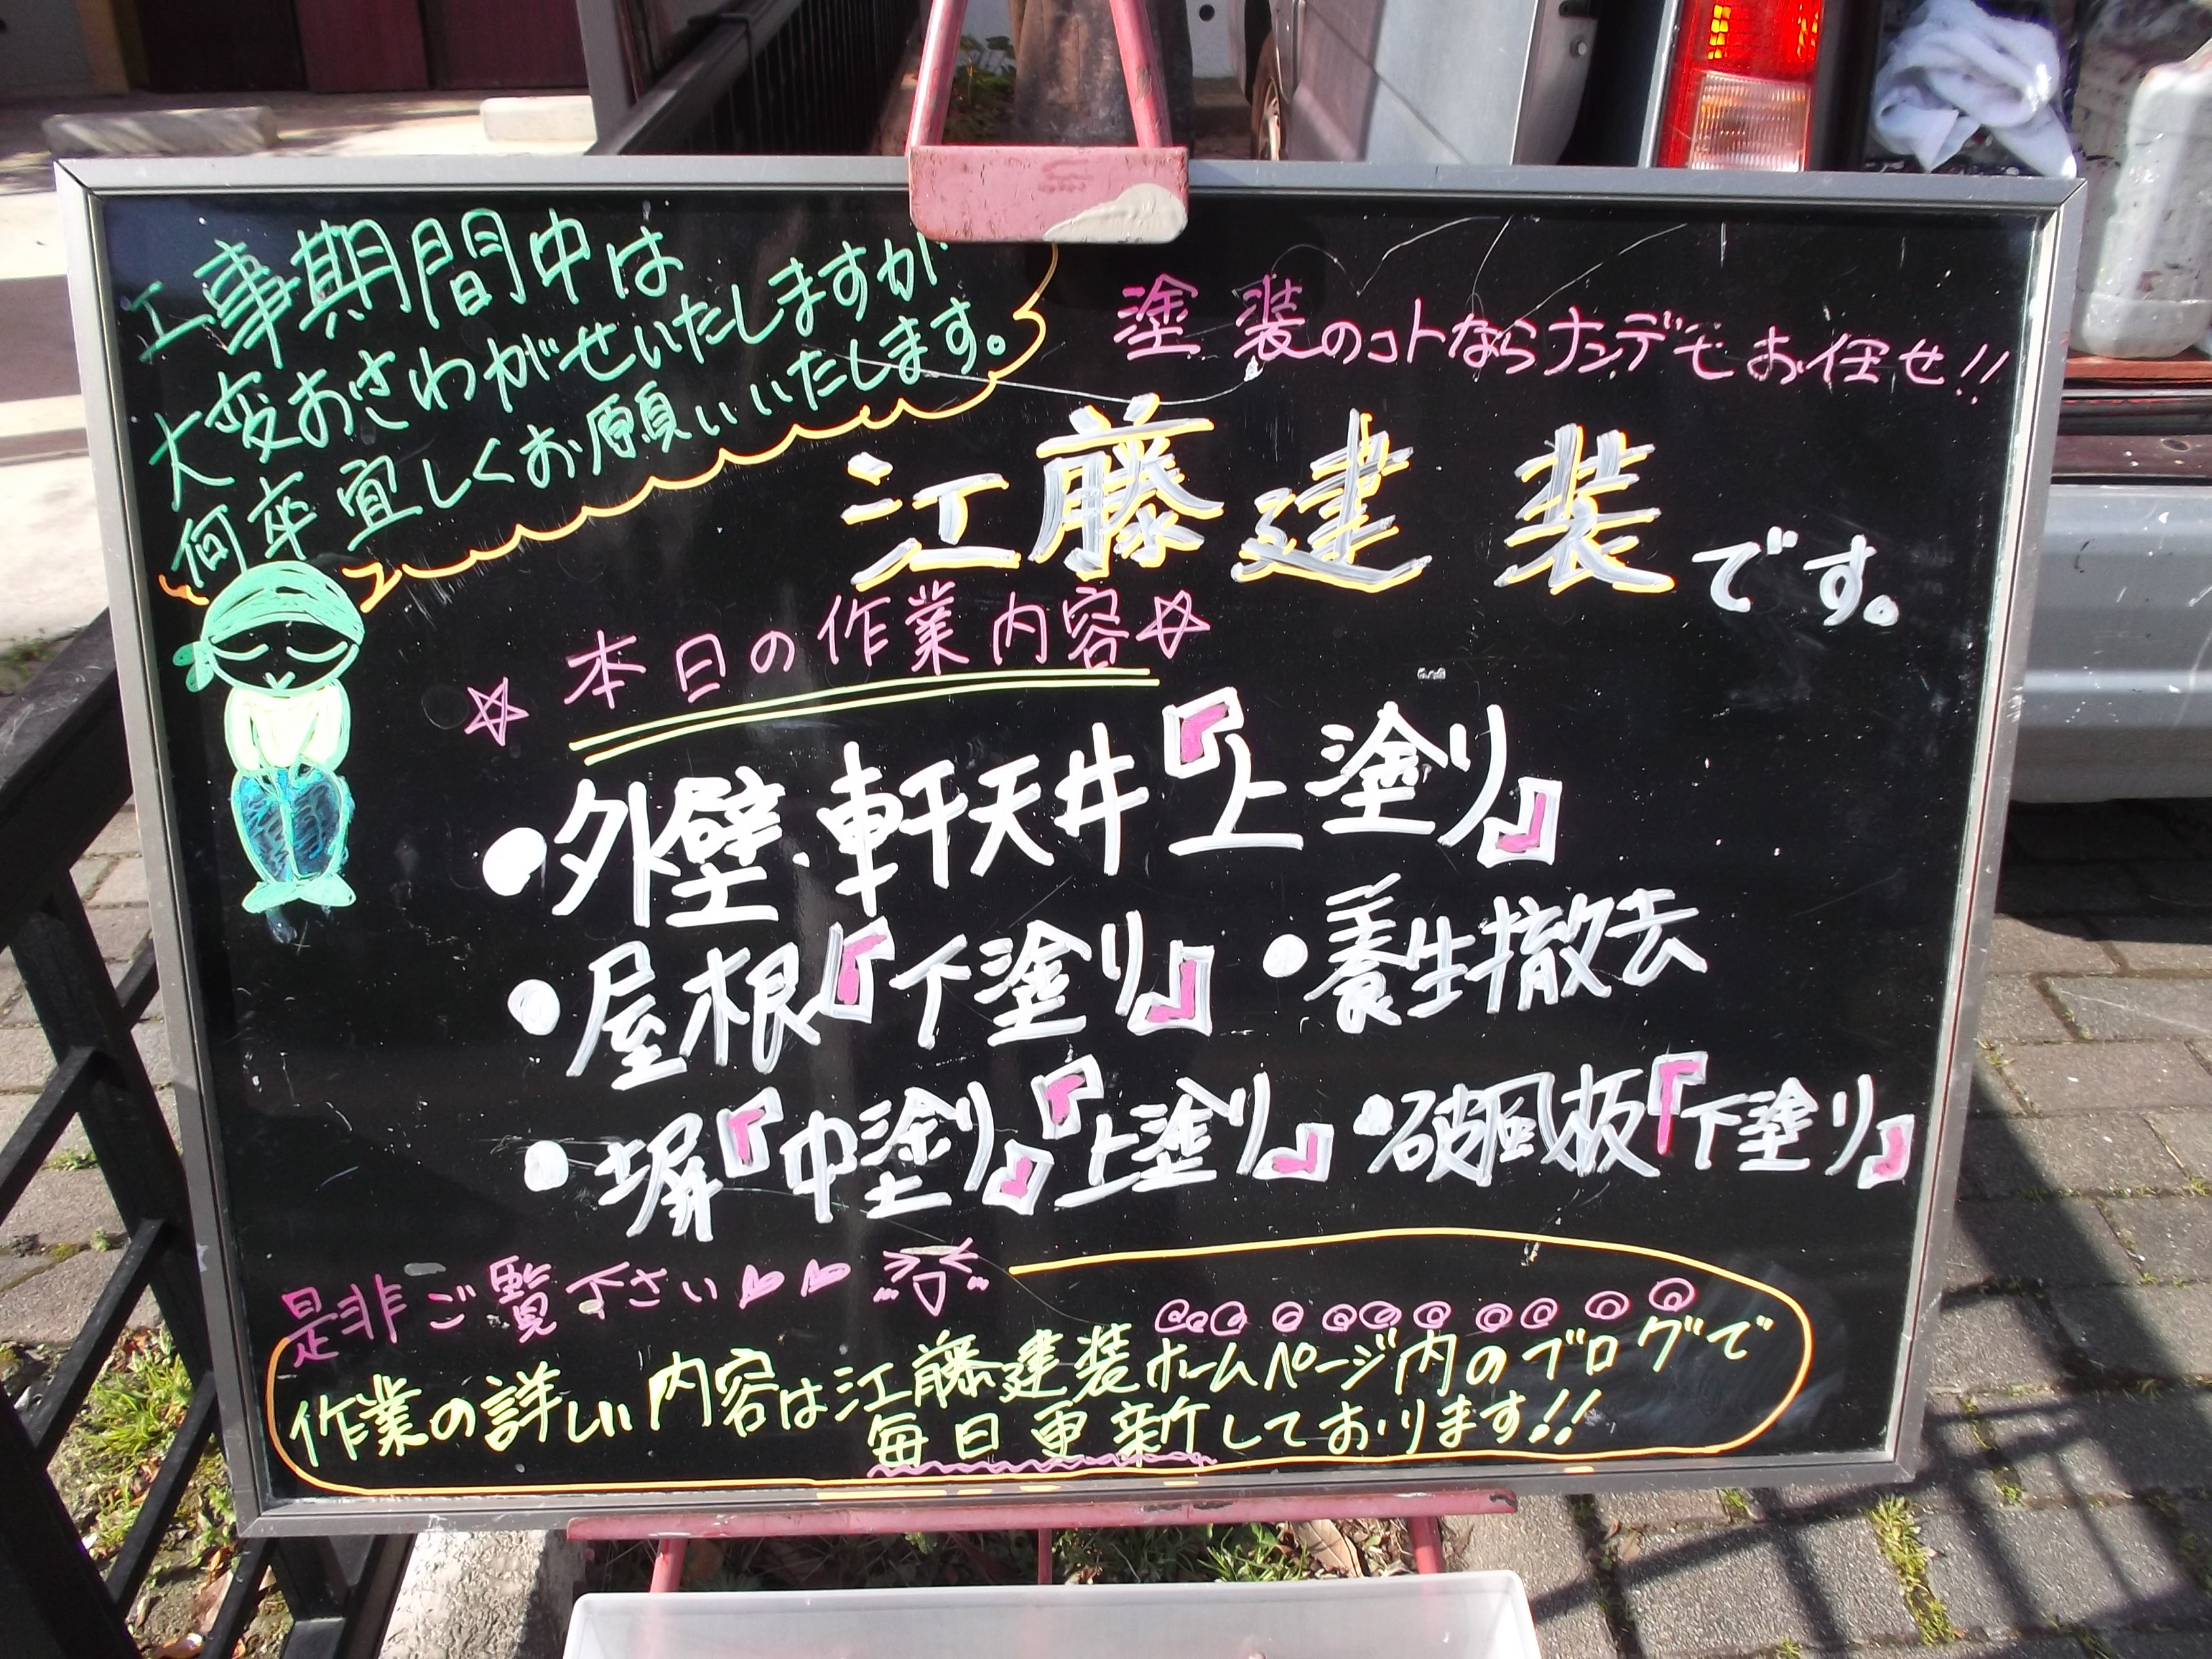 工事期間中は
大変おさわがせいたしますが
何卒宜しくお願いいたします。
塗装のコトならナンデモお任せ!!
江藤建装です。
☆本日の作業内容☆
●外壁.軒天井『上塗り』
●屋根『下塗り』●養生撤去
●塀『中塗り』『上塗り』●破風板『下塗り』
是非ご覧下さい
作業の詳しい内容は江藤建装ホームページ内のブログで
毎日更新しております!!